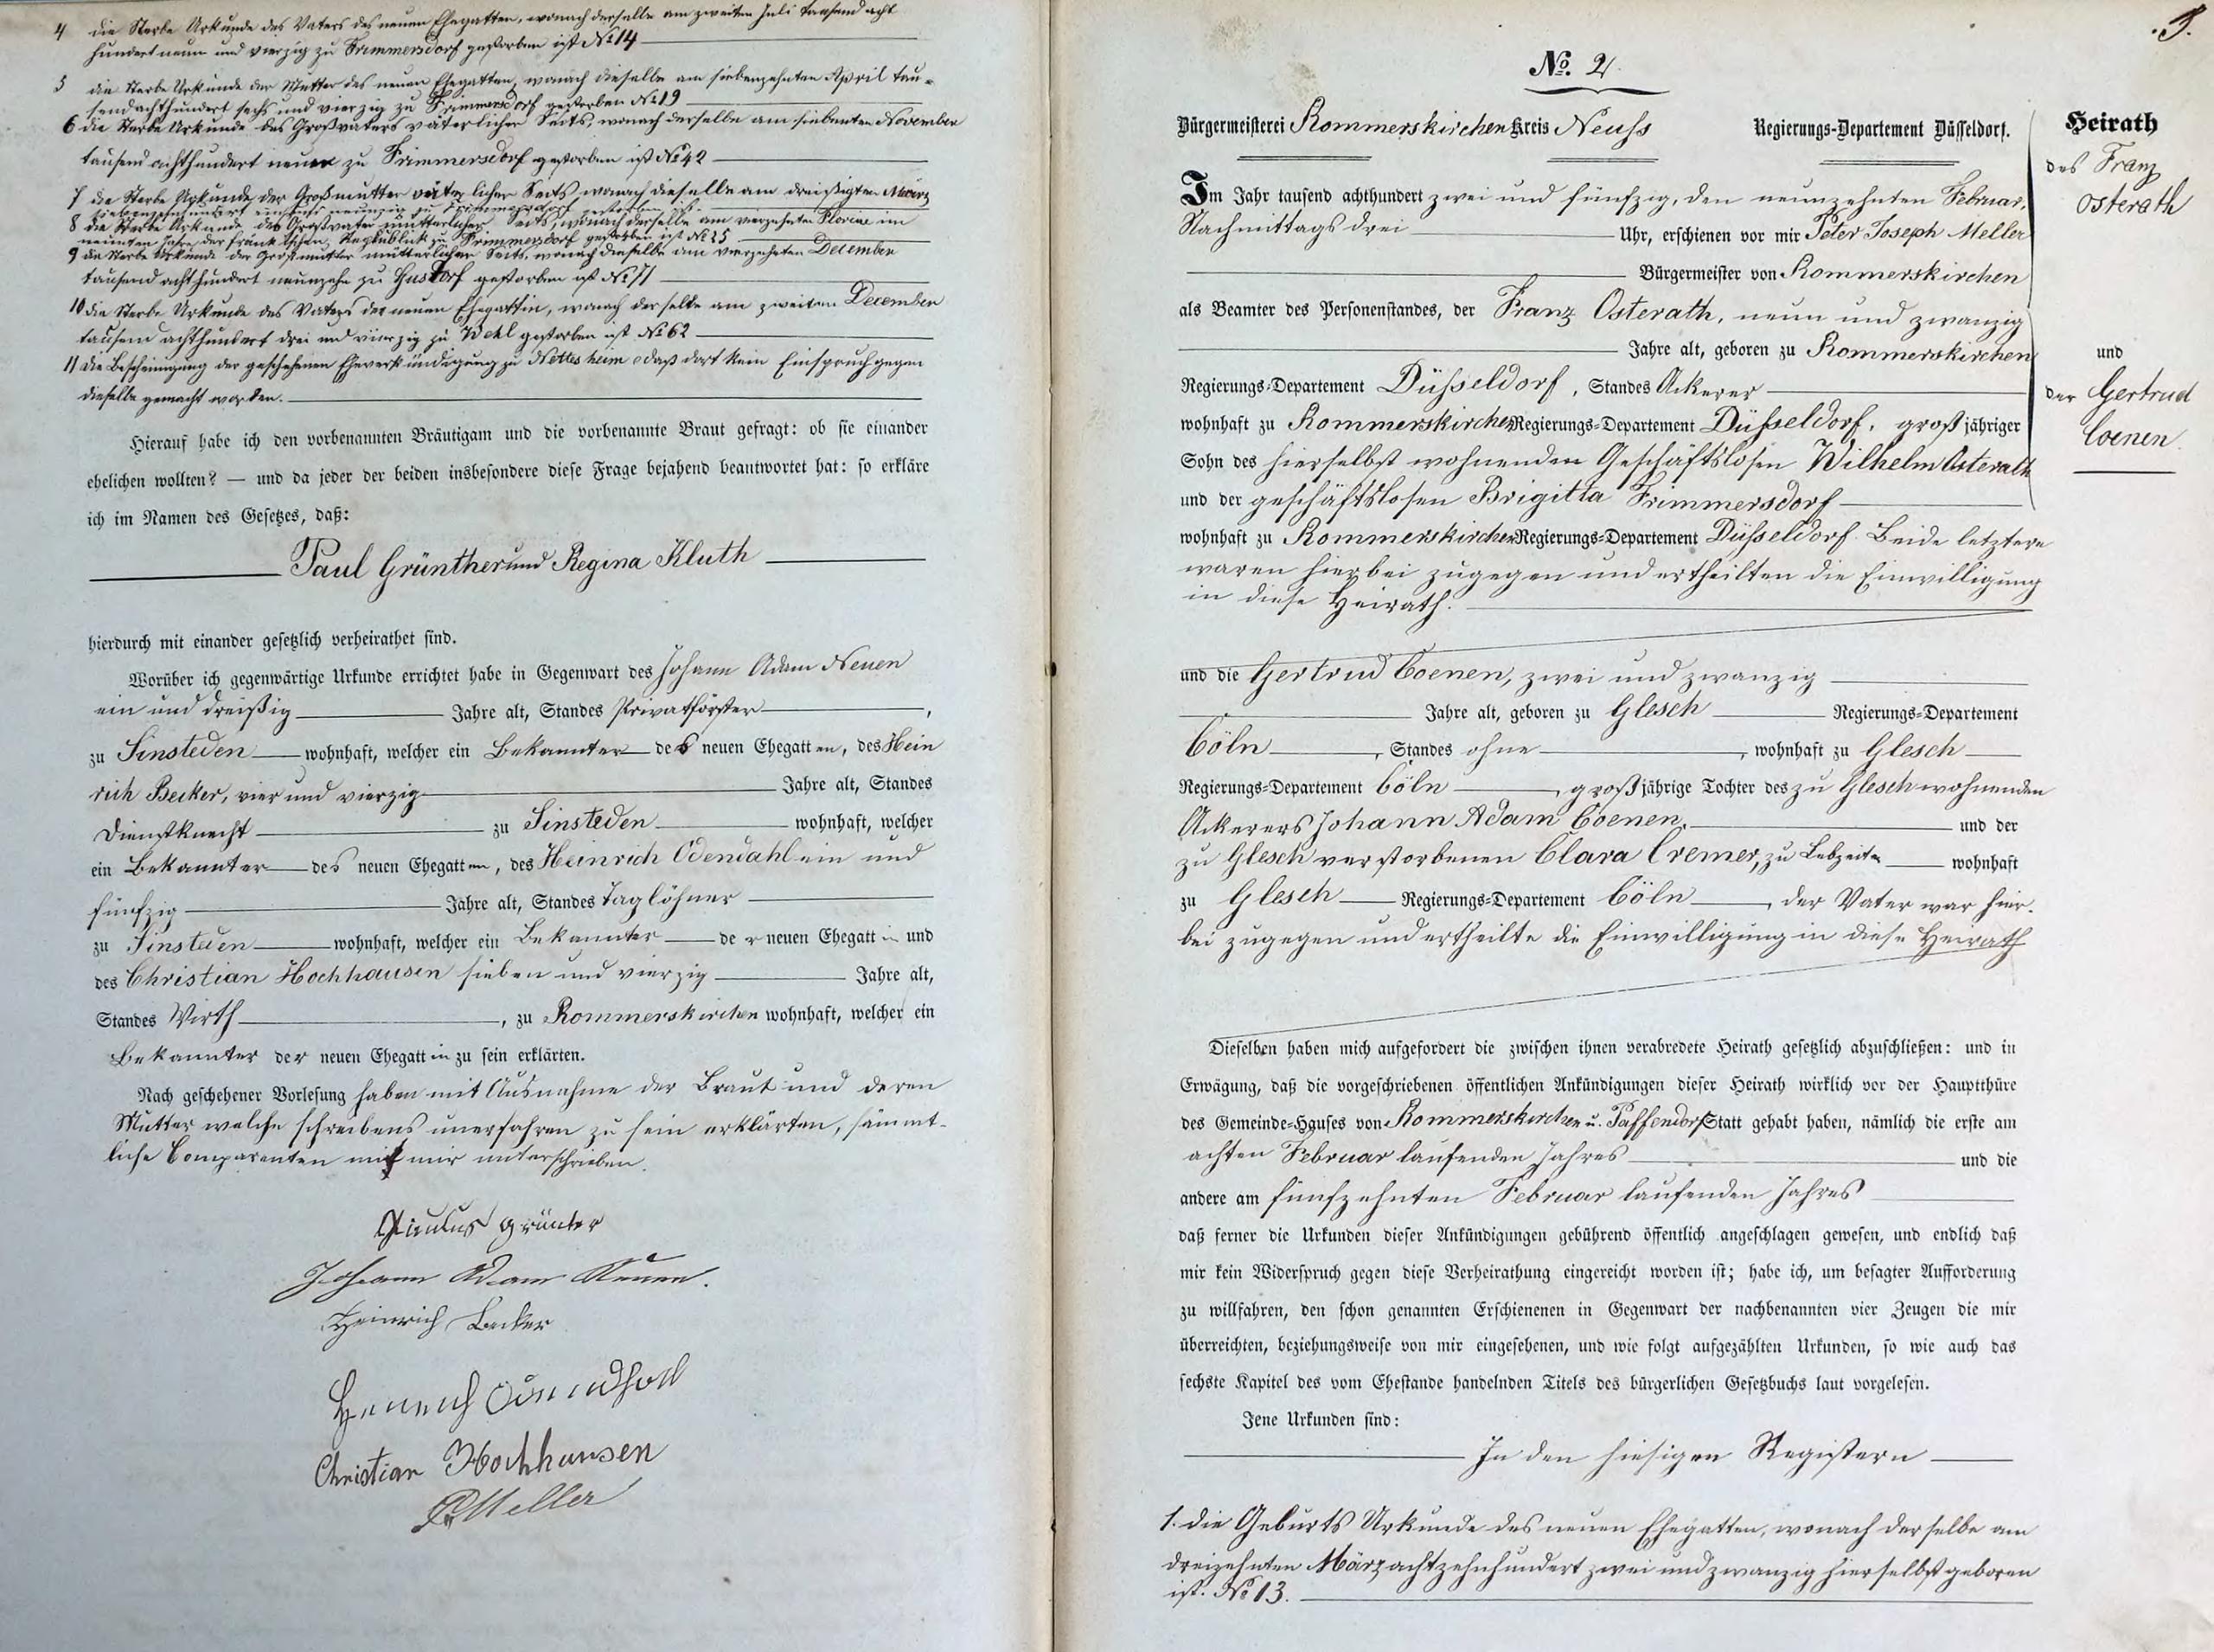 4 die Sterbe Urkunde des Vaters des neuen Ehegatten, wonach derselbe am zweiten Juli tausend acht
hundert neun und vierzig zu Frimmersdorf gestorben ist No 14
5 die Sterbe Urkunde der Mutter des neuen Ehegatten, wonach dieselbe am siebenzehnten April tau-
send achthundert sechs und vierzig zu Frimmersdorf gestorben No 19
6 die Sterbe Urkunde des Großvaters väterlicher Seits, wonach derselbe am siebenten November
tausend achthundert neun zu Frimmersdorf gestorben ist No 42
7 die Sterbe Urkunde der Großmutter väterlicher Seits, wonach dieselbe am dreißigten Maerz
siebenzehnhundert neunzig zu Frimmersdorf gestorben ist.
8 die Sterbe Urkunde des Großvater mütterlicher Seits, wonach derselbe am vierzehnten Floreal im
neunten Jahre der fränkischen Republick zu Frimmersdorf gestorben ist No 25
9 die Sterbe Urkunde der Großmutter mütterlicher Seits, wonach dieselbe am vierzehnten December
tausend achthundert neunzehn zu Gustorf gestorben ist No 71
10 die Sterbe Urkunde des Vaters der neuen Ehegattin, wonach derselbe am zweiten December
tausend achthundert drei und vierzig zu Wehl gestorben ist No 62
11 die Bescheinigung der geschehenen Eheverkündigung zu Nettesheim daß dort kein Einspruch gegen
dieselbe gemacht worden.
Hierauf habe ich den vorbenannten Bräutigam und die vorbenannte Braut gefragt: ob sie einander
ehelichen wollten? — und da jeder der beiden insbesondere diese Frage bejahend beantwortet hat: so erkläre
ich im Namen des Gesetzes, daß:
Paul Grünther und Regina Kluth
hierdurch mit einander gesetzlich verheirathet sind.
Worüber ich gegenwärtige Urkunde errichtet habe in Gegenwart des Johann Adam Neuen
ein und dreißig Jahre alt, Standes Privatförster,
zu Sinsteden wohnhaft, welcher ein Bekannter des neuen Ehegatten, des Hein
rich Becker, vier und vierzig Jahre alt, Standes
Dienstknecht zu Sinsteden wohnhaft, welcher
ein Bekannter des neuen Ehegatten, des Heinrich Odendahl ein und
fünfzig Jahre alt, Standes Taglöhner
zu Sinsteden wohnhaft, welcher ein Bekannter der neuen Ehegattin und
des Christian Hochhausen sieben und vierzig Jahre alt,
Standes Wirth, zu Rommerskirchen wohnhaft, welcher ein
Bekannter der neuen Ehegattin zu sein erklärten.
Nach geschehener Vorlesung haben mit Ausnahme der Braut und deren
Mutter welche schreibens unerfahren zu sein erklärten, sämmt-
liche Comparenten mit mir unterschrieben.
Paulus Grünter
Johann Adam Neuen.
Heinrich Becker
Henrich Odendhall
Christian Hochhausen
Meller
3.
No. 2.
Bürgermeisterei Rommerskirchen Kreis Neuss Regierungs-Departement Düsseldorf.
Im Jahr tausend achthundert zwei und fünfzig, den neunzehnten Februar,
Nachmittags drei Uhr, erschienen vor mir Peter Joseph Meller
Bürgermeister von Rommerskirchen
als Beamter des Personenstandes, der Franz Osterath, neun und zwanzig
Jahre alt, geboren zu Rommerskirchen
Regierungs-Departement Düsseldorf, Standes Ackerer
wohnhaft zu Rommerskirchen Regierungs-Departement Düsseldorf, großjähriger
Sohn des hierselbst wohnenden Geschäftslosen Wilhelm Osterath
und der geschäftslosen Brigitta Frimmersdorf
wohnhaft zu Rommerskirchen Regierungs-Departement Düsseldorf. Beide letztere
waren hierbei zugegen und ertheilten die Einwilligung
in diese Heirath.
und die Gertrud Coenen, zwei und zwanzig
Jahre alt, geboren zu Glesch Regierungs-Departement
Cöln, Standes ohne, wohnhaft zu Glesch
Regierungs-Departement Cöln, großjährige Tochter des zu Glesch wohnenden
Ackerers Johann Adam Coenen, und der
zu Glesch verstorbenen Clara Cremer, zu Lebzeiten wohnhaft
zu Glesch Regierungs-Departement Cöln, der Vater war hier-
bei zugegen und ertheilte die Einwilligung in diese Heirath
Dieselben haben mich aufgefordert die zwischen ihnen verabredete Heirath gesetzlich abzuschließen: und in
Erwägung, daß die vorgeschriebenen öffentlichen Ankündigungen dieser Heirath wirklich vor der Hauptthüre
des Gemeinde-Hauses von Rommerskirchen u. Paffendorf Statt gehabt haben, nämlich die erste am
achten Februar laufenden Jahres und die
andere am fünfzehnten Februar laufenden Jahres
daß ferner die Urkunden dieser Ankündigungen gebührend öffentlich angeschlagen gewesen, und endlich daß
mir kein Widerspruch gegen diese Verheirathung eingereicht worden ist; habe ich, um besagter Aufforderung
zu willfahren, den schon genannten Erschienenen in Gegenwart der nachbenannten vier Zeugen die mir
überreichten, beziehungsweise von mir eingesehenen, und wie folgt aufgezählten Urkunden, so wie auch das
sechste Kapitel des vom Ehestande handelnden Titels des bürgerlichen Gesetzbuchs laut vorgelesen.
Jene Urkunden sind:
In den hiesigen Registern
1. die Geburts Urkunde des neuen Ehegatten, wonach derselbe am
dreizehnten März achtzehnhundert zwei und zwanzig hierselbst geboren
ist. No 13.
Heirath
des Franz
Osterath
und
der Gertrud
Coenen.